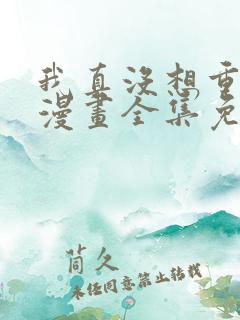 我真没想重
漫畫全集免
茼久
未经同意禁止转载